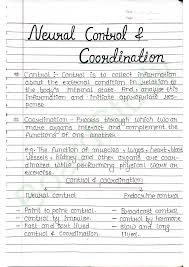 Neural Control &
Coordination
Control :- Control is to collect information
about the external condition in relation to
the body's internal state. And analyse this
information and initiate appropriate res-
ponse.
Coordination - Process through which two or
more organs interact and complement the
function of one another.
e.g. The function of muscles, lungs, heart, blood
vessels, kidney and other organs are coor-
dinated while performing physical work or
exercise.
Control & coordination
Neural control
Endocrine control
- Point to point control.
- Broadcast control
- Control by impulse.
- control by hormone
- Fast and short lived
- Slow and long
control & coordination.
lived.